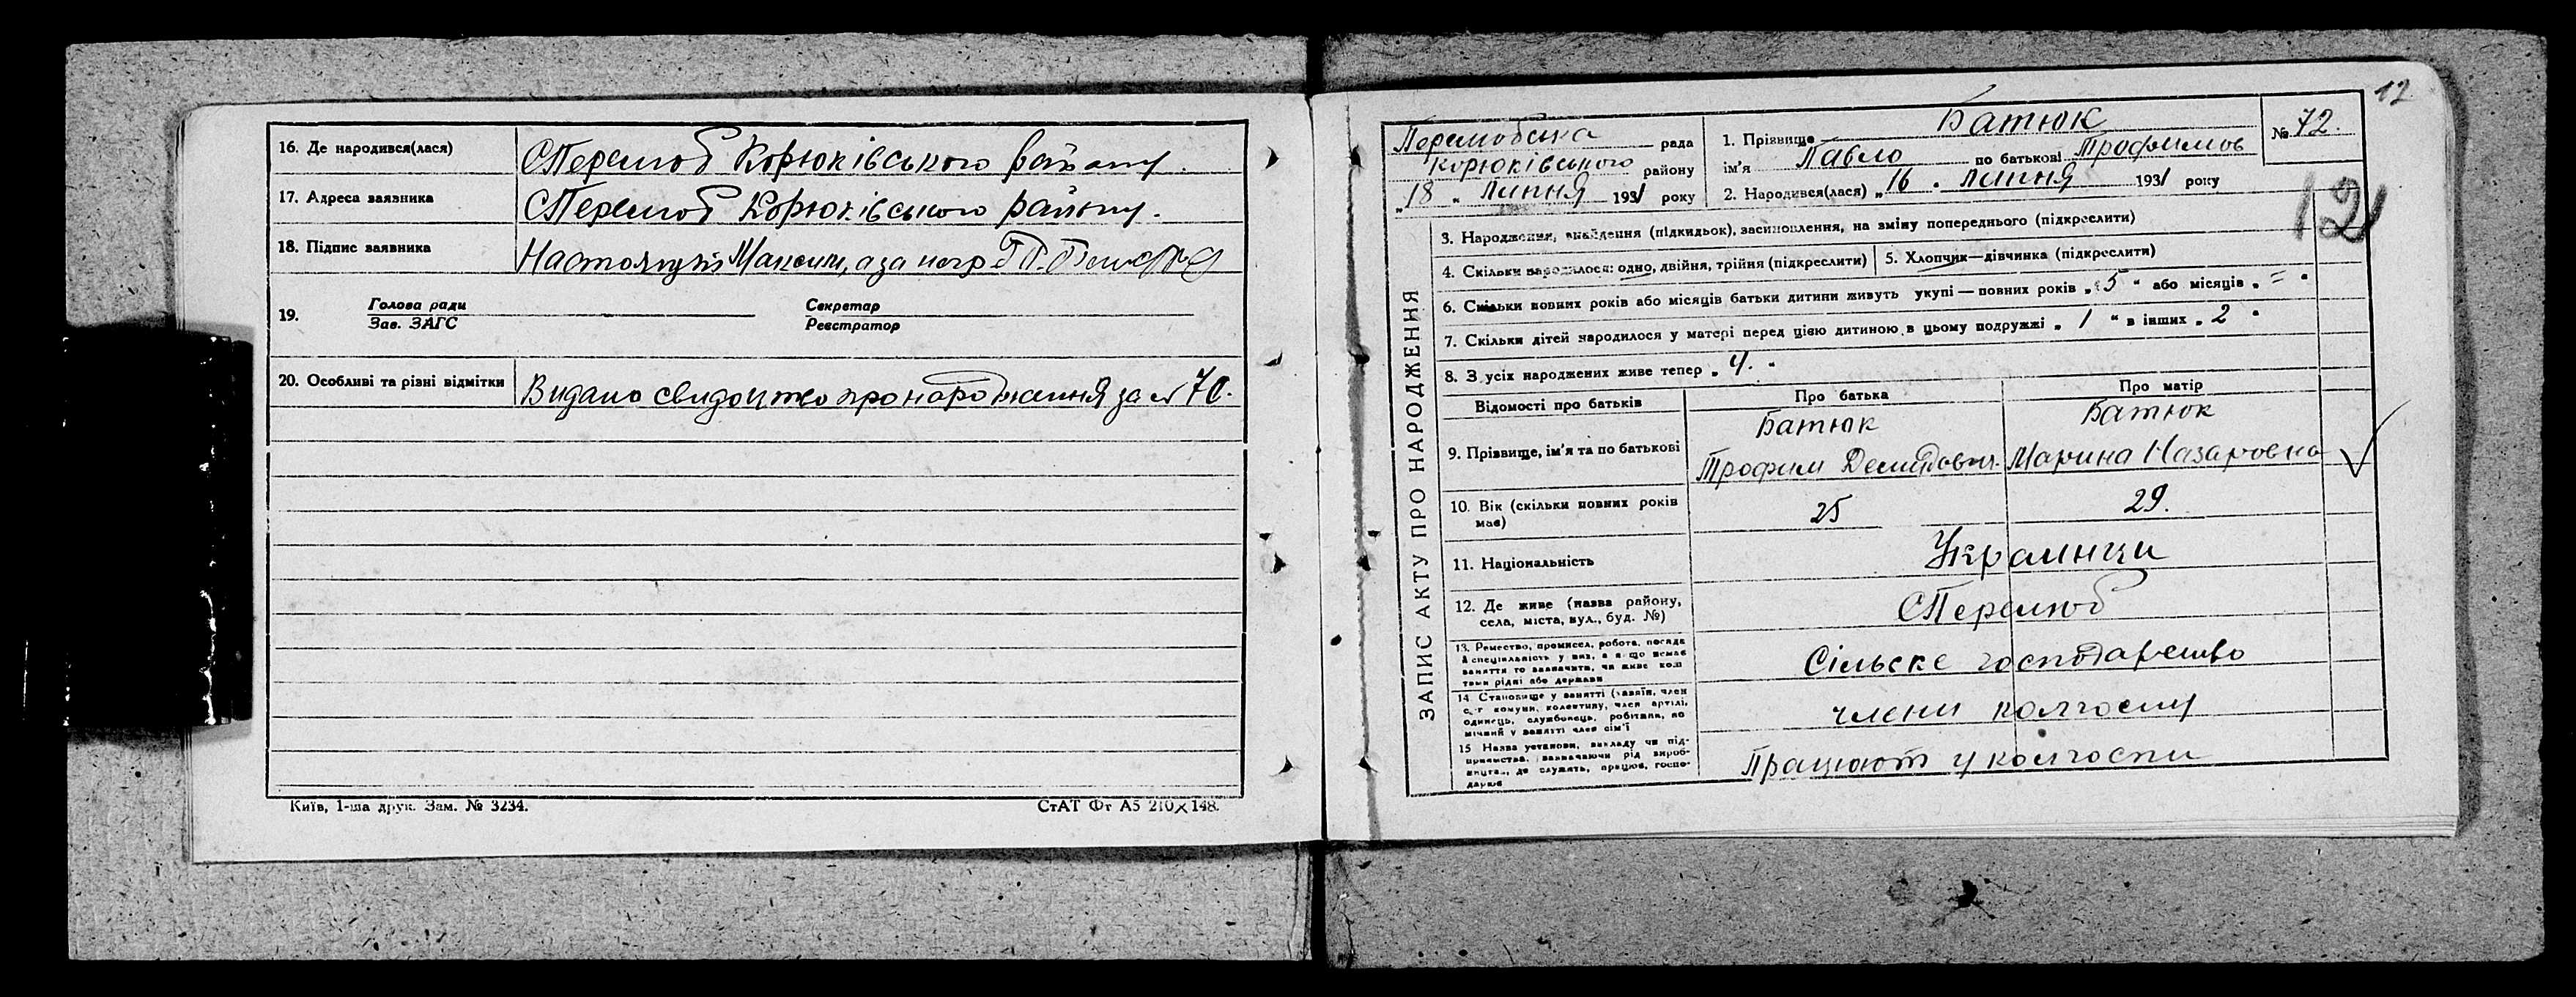 16. Де народився(лася) С Перелюб Корюківського району.
17. Адреса заявника С Перелюб Корюківського району.
18. Підпис заявника Максим, а за негр
19. Голова ради Секретар
Зав. ЗАГС Реєстратор
20. Особливі та різні відмітки Видано свидоцтво про народження за №
Київ, 1-ша друк. Зам. № 3234. СтАТ Фт А5 210×148.
12
Перелюбська рада
Корюківського району
„18 „ Липня 1931 року
1. Прізвище Батюк
ім'я Павло по батькові Трофимов
2. Народився(лася) „16 . Липня 1931 року
№ 72.
12
ЗАПИС АКТУ ПРО НАРОДЖЕННЯ
3. Народження, знайдення (підкидьок), засиновлення, на зміну попереднього (підкреслити)
4. Скільки народилося: одно, двійня, трійня (підкреслити) 5. Хлопчик—дівчинка (підкреслити)
6. Скільки повних років або місяців батьки дитини живуть укупі — повних років „5 “ або місяців „ = “
7. Скільки дітей народилося у матері перед цією дитиною в цьому подружжі „ 1 “ в інших „ 2 “
8. З усіх народжених живе тепер „ 4. “
Відомості про батьків Про батька Про матір
9. Прізвище, ім'я та по батькові Батюк Батюк
Трофим Демидович. Марина Назаровна
10. Вік (скільки повних років має) 25 29.
11. Національність Украинци
12. Де живе (назва району, С Перелюб
села, міста, вул., буд. №)
13. Ремество, промисел, робота, посада Сільске господарство
й спеціальність у них, а якщо немає
заняття то зазначити, чи живе кош
тами рідні або держави
14. Становище у занятті (хазяїн, член члени колгоспу
с.-г комуни, колективу, член артілі,
одинець, службовець, робітник, по
мічний у занятті член сім'ї
15 Назва установи, закладу чи під- Працюют у колгоспи
приємства, зазначаючи рід вироб-
ництва, де служить, працює, госпо-
дарює